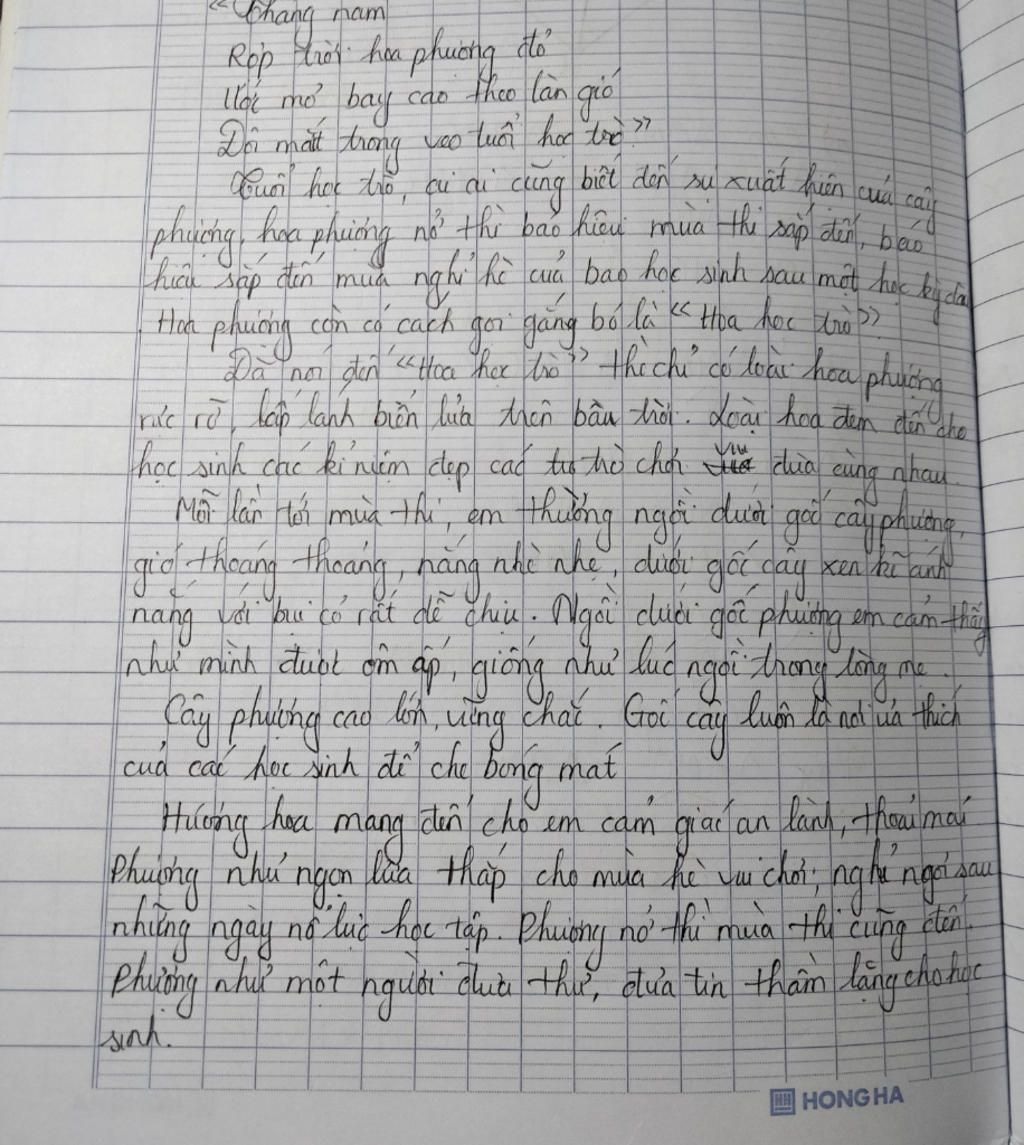 “ Tháng năm
Rợp trời hoa phượng đỏ
Ước mơ bay cao theo làn gió
Đôi mắt trong veo tuổi học trò”
Tuổi học trò, ai ai cũng biết đến sự xuất hiện của cây
phượng, hoa phượng nở thì báo hiệu mùa thi sắp đến, báo
hiệu sắp đến mùa nghỉ hè của bao học sinh sau một học kỳ dài
Hoa phượng còn có cách gọi gắng bó là “Hoa học trò”
Đã nói đến “Hoa học trò” thì chỉ có loài hoa phượng
rực rỡ, lấp lánh biển lửa trên bầu trời. Loài hoa đem đến cho
học sinh các kỉ niệm đẹp các trò chơi vui đùa cùng nhau
Mỗi lần tới mùa thi, em thường ngồi dưới gốc cây phượng,
gió thoáng thoáng, nắng nhè nhẹ, dưới gốc cây xen kĩ ánh
nắng với bụi cỏ rất dễ chịu. Ngồi dưới gốc phượng em cảm thấy
như mình được ôm ấp, giống như lúc ngồi trong lòng mẹ.
Cây phượng cao lớn, vững chắc. Gốc cây luôn là nơi ưa thích
của các học sinh để che bóng mát
Hương hoa mang đến cho em cảm giác an lành, thoải mái
Phượng như ngọn lửa thắp cho mùa hè vui chơi, nghỉ ngơi sau
những ngày nỗ lực học tập. Phượng nở thì mùa thi cũng đến.
Phượng như một người đưa thư, đưa tin thầm lặng cho học
sinh.
HH HONG HA